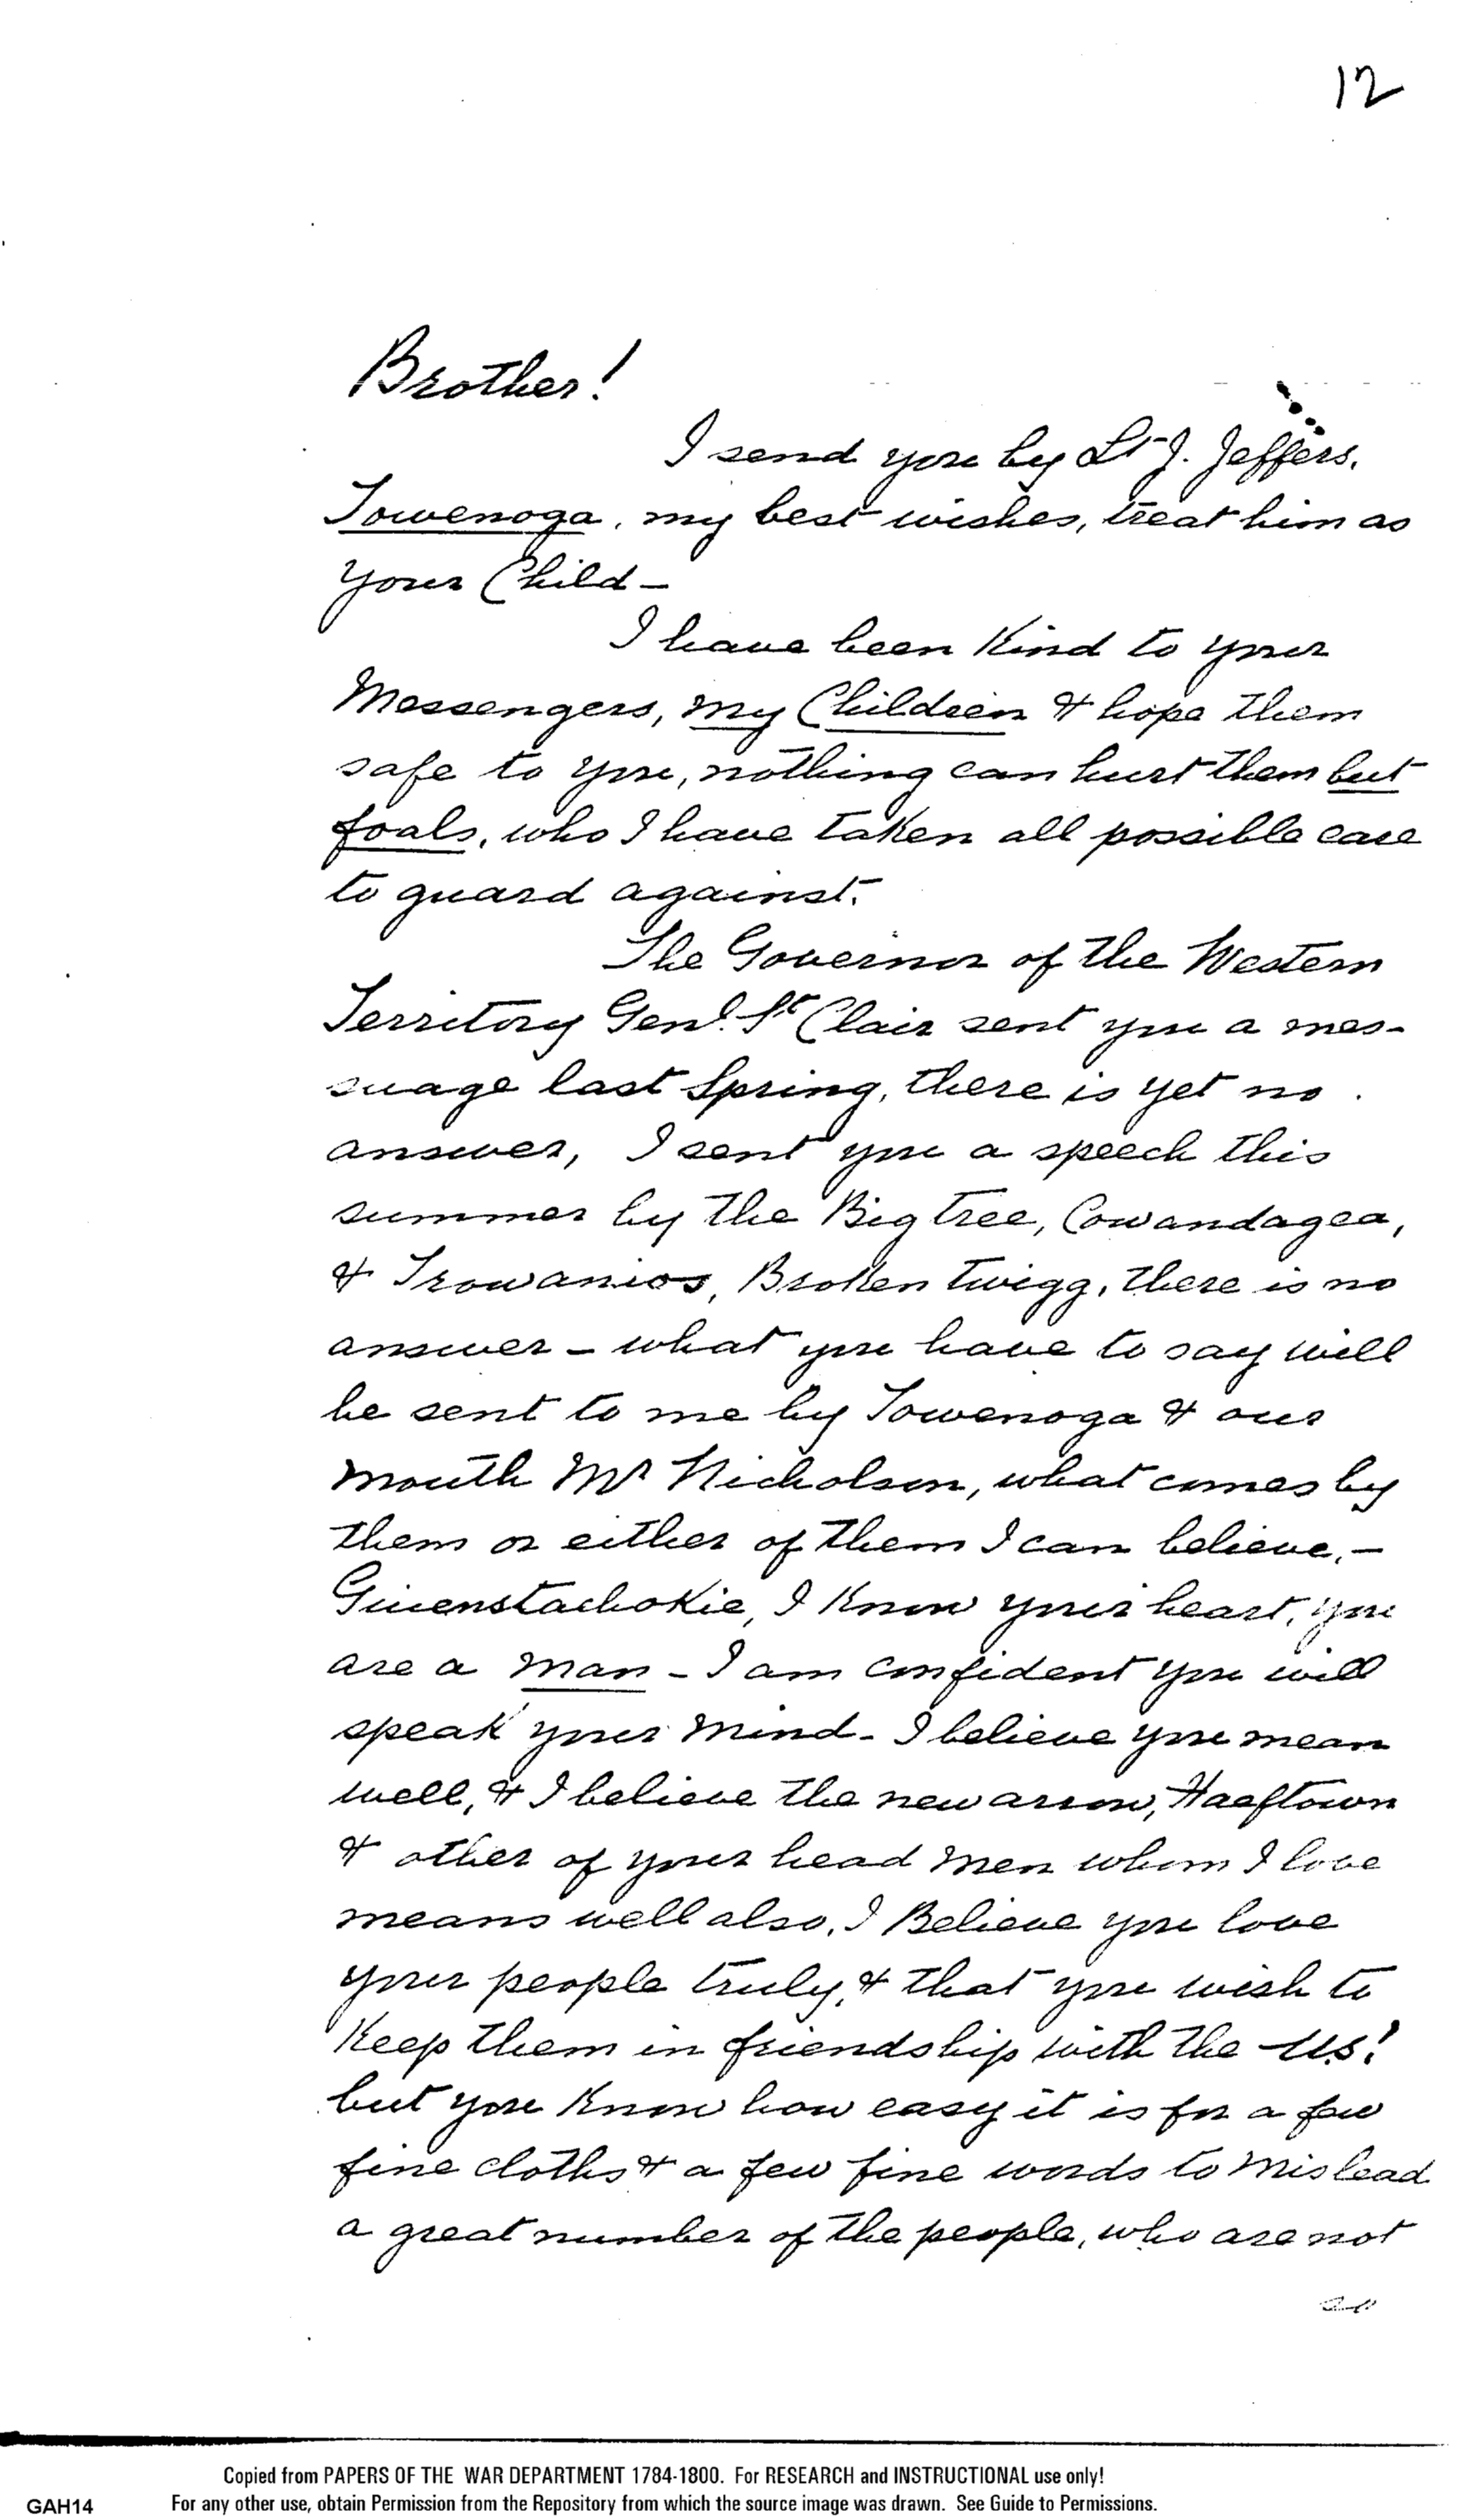 12
Brother!
I send you by Lt J. Jeffers,
Towenoga, my best wishes, treat him as
your Child –
I have been Kind to your
Messengers, my Children & hope them
safe to you, nothing can hurt them but
foals, who I have taken all possible care
to guard against.
The Governor of the Western
Territory Genl. St Clair sent you a mes-
suage last Spring, there is yet no
answer, I sent you a speech this
summer by the Big tree, Cowandagea,
& Trowanios, Broken Twigg, there is no
answer – what you have to say will
be sent to me by Towenoga & our
Mouth Mr Nicholson, what comes by
them or either of them I can believe, –
Giuenstachokie, I Know your heart, you
are a man – I am confident you will
speak your Mind – I believe you mean
well, & I believe the new arrow, Haaftown
& other of your head Men whom I love
means well also, I Believe you love
your people truly, & that you wish to
Keep them in friendship with the U.S!
but you Know how easy it is for a few
fine cloths & a few fine words to mislead
a great number of the people, who are not
as
Copied from PAPERS OF THE WAR DEPARTMENT 1784-1800. For RESEARCH and INSTRUCTIONAL use only!
GAH14 For any other use, obtain Permission from the Repository from which the source image was drawn. See Guide to Permissions.